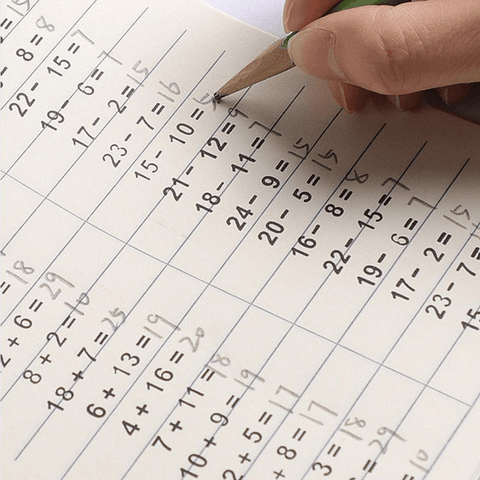 - 8=8
22- 15=7
19- 6=7
17- 2=15
23- 7=16
15- 10=5
21- 12=9
18- 11=7
24- 9=15
20- 5=15
16- 8=8
22- 15=7
19- 6=7
17- 2=15
23- 7=
15
=18
2+6=29
8+2=10
18+7=25
6+13=19
4+16=20
7+11=18
10+9=19
2+5=17
+8=17
3=18
=29
10